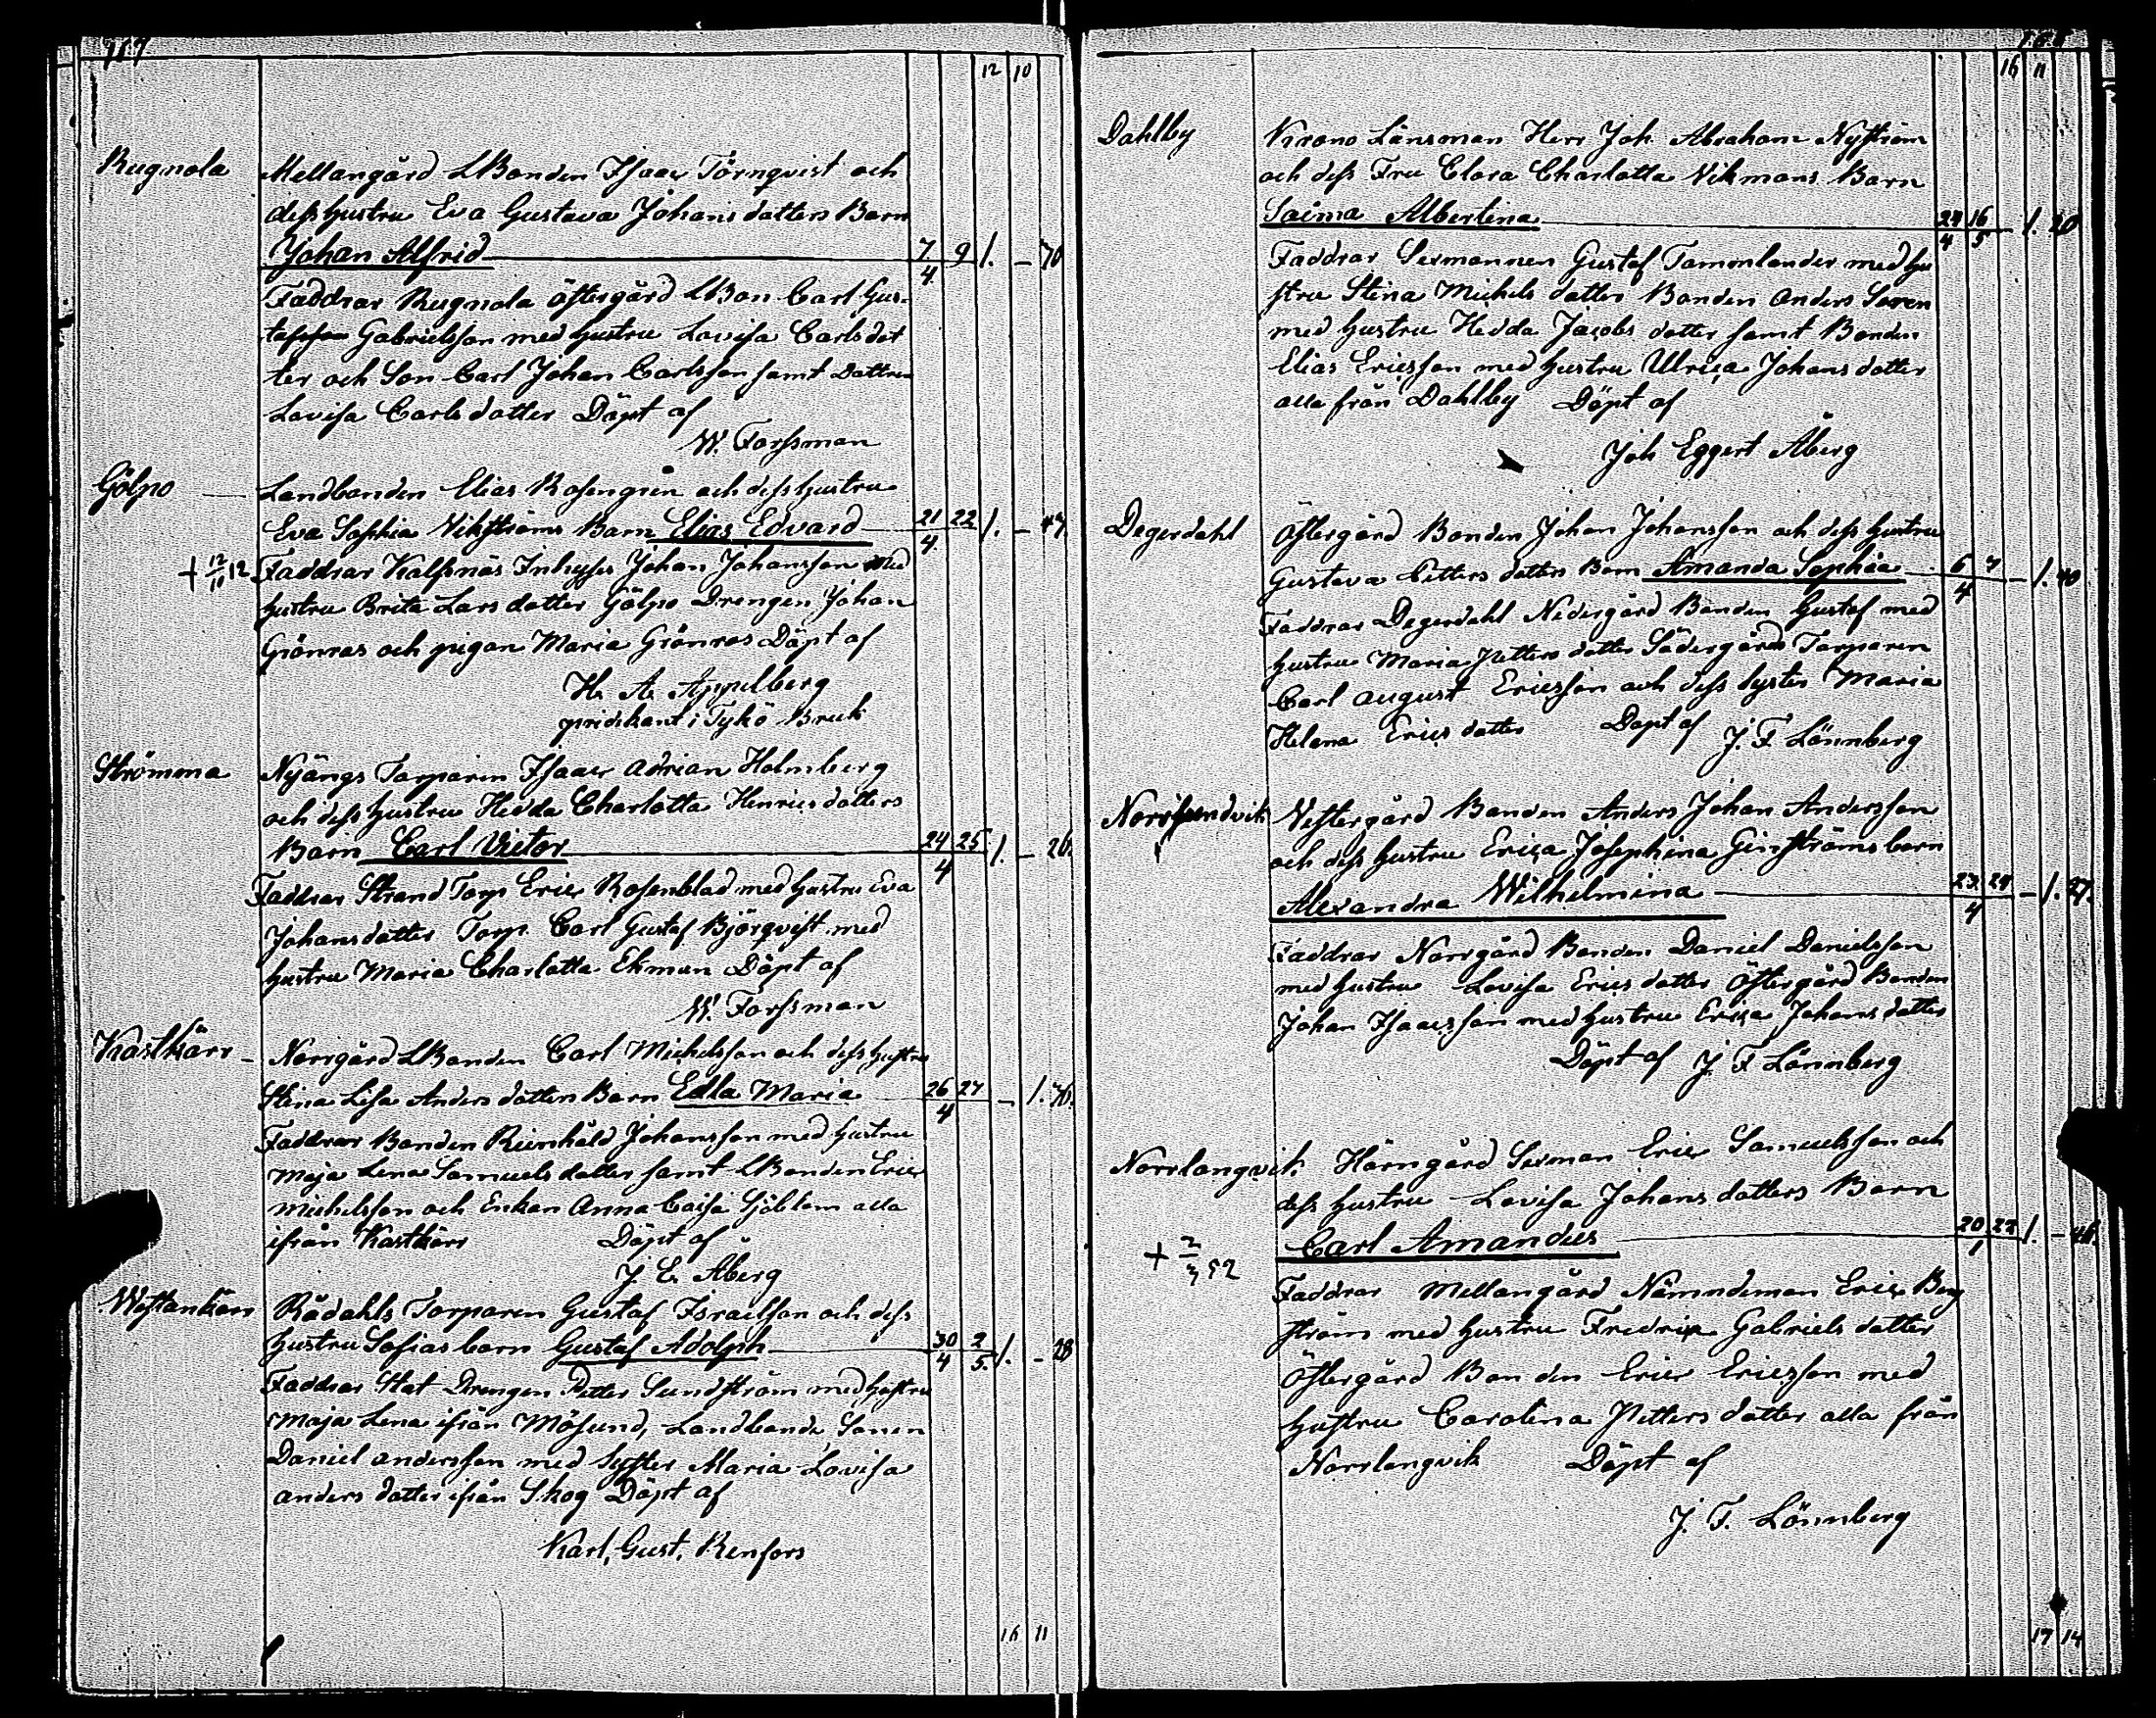 12 10
Rugnola Mellangård LBonden Isaac Törnqvist och
dess hustru Eva Gustava Johansdotters Barn
Johan Alfrid 7/4 9 1. – 70
Faddrar Rugnola Östergård LBon Carl Gus-
Gabrielsson med hustru Lovisa Carlsdot
ter och Son Carl Johan Carlsson samt Dottren
Lovisa Carlsdotter Döpt af
W. Forssman
Gölpo — Landbonden Elias Rosengren och dess hustru
Eva Sophia Vikströms Barn Elias Edvard 21/4 22 1. – 47.
+ 12/10 12 Faddrar Kalfsnäs Inhyses Johan Johansson med
hustru Brita Larsdotter Gölpo Drengen Johan
Grönros och pigan Maria Grönros Döpt af
H. A. Appelberg
predikant i Tykö Bruk
Strömma Nyängs Torparen Isaac Adrian Holmberg
och dess hustru Hedda Charlotta Henricsdotters
Barn Carl Victor 24/4 25 1. – 26.
Faddrar Strand Torp Eric Rosenblad med hustru Eva
Johansdotter Torp. Carl Gustaf Björqvist med
hustru Maria Charlotta Ekman Döpt af
W. Forssman
Kastkärr – Norrgård LBonden Carl Michelsson och dess hustru
Stina Lisa Andersdotters Barn Edla Maria 26/4 27 – 1. 76.
Faddrar Bonden Reinhåld Johansson med hustru
Maja Lena Samuelsdotter samt LBonden Eric
Michelsson och Enkan Anna Caisa Sjöblom alla
ifrån Kastkärr Döpt af
J. E. Åberg
Westankärr Rådahls Torparen Gustaf Israelsson och dess
hustru Sofias barn Gustaf Adolph 30/4 2/5. 1. – 28
Faddrar Stat Drengen Petter Sundström med hustru
Maja Lena ifrån Mösund, Landbonde Sonen
Daniel Andersson med Syster Maria Lovisa
Anders dotter ifrån Skog Döpt af
Karl, Gust, Renfors
16 11
16 11
Dahlby Krono Länsman Herr Joh. Abraham Nyström
och dess Fru Clara Charlotta Vikmans Barn
Saima Albertina 24/4 16/5 – 1. 20
Faddrar Sexmannen Gustaf Tammlander med hu
stru Stina Michelsdotter Bonden Anders Saren
med hustru Hedda Jacobsdotter samt Bonden
Elias Ericsson med hustru Ulrica Johansdotter
alla från Dahlby Döpt af
Joh Eggert Åberg
Degerdahl Östergård Bonden Johan Johansson och dess hustru
Gustava Petters dotters Barn Amanda Sophia 6/4 7 – 1. 40
Faddrar Degerdahl Nedergård Bonden Gustaf med
hustru Maria Pettersdotter Södergård Torparen
Carl August Ericsson och dess syster Maria
Helena Erics dotter Döpt af J. F. Lönnberg
Norrsundvik Vestergård Bonden Anders Johan Andersson
och dess hustru Erica Josephina Ginströms barn
Alexandra Wilhelmina 23/4 24 – 1. 27.
Faddrar Norrgård Bonden Daniel Danielsson
med hustru Lovisa Ericsdotter Östergård Bonden
Johan Isaacsson med hustru Erica Johansdotter
Döpt af J. F. Lönnberg
Norrlangvik Hörngård Sexman Eric Samuelsson och
dess hustru Lovisa Johans dotters Barn
Carl Amandus 20/1 22 1. – 46.
+ 2/3 52
Faddrar Mellangård Nämndeman Eric Berg
ström med hustru Fredrika Gabriels dotter
Östergård Bonden Eric Ericsson med
hustru Carolina Petters dotter alla från
Norrlangvik Döpt af
J. F. Lönnberg
17 14